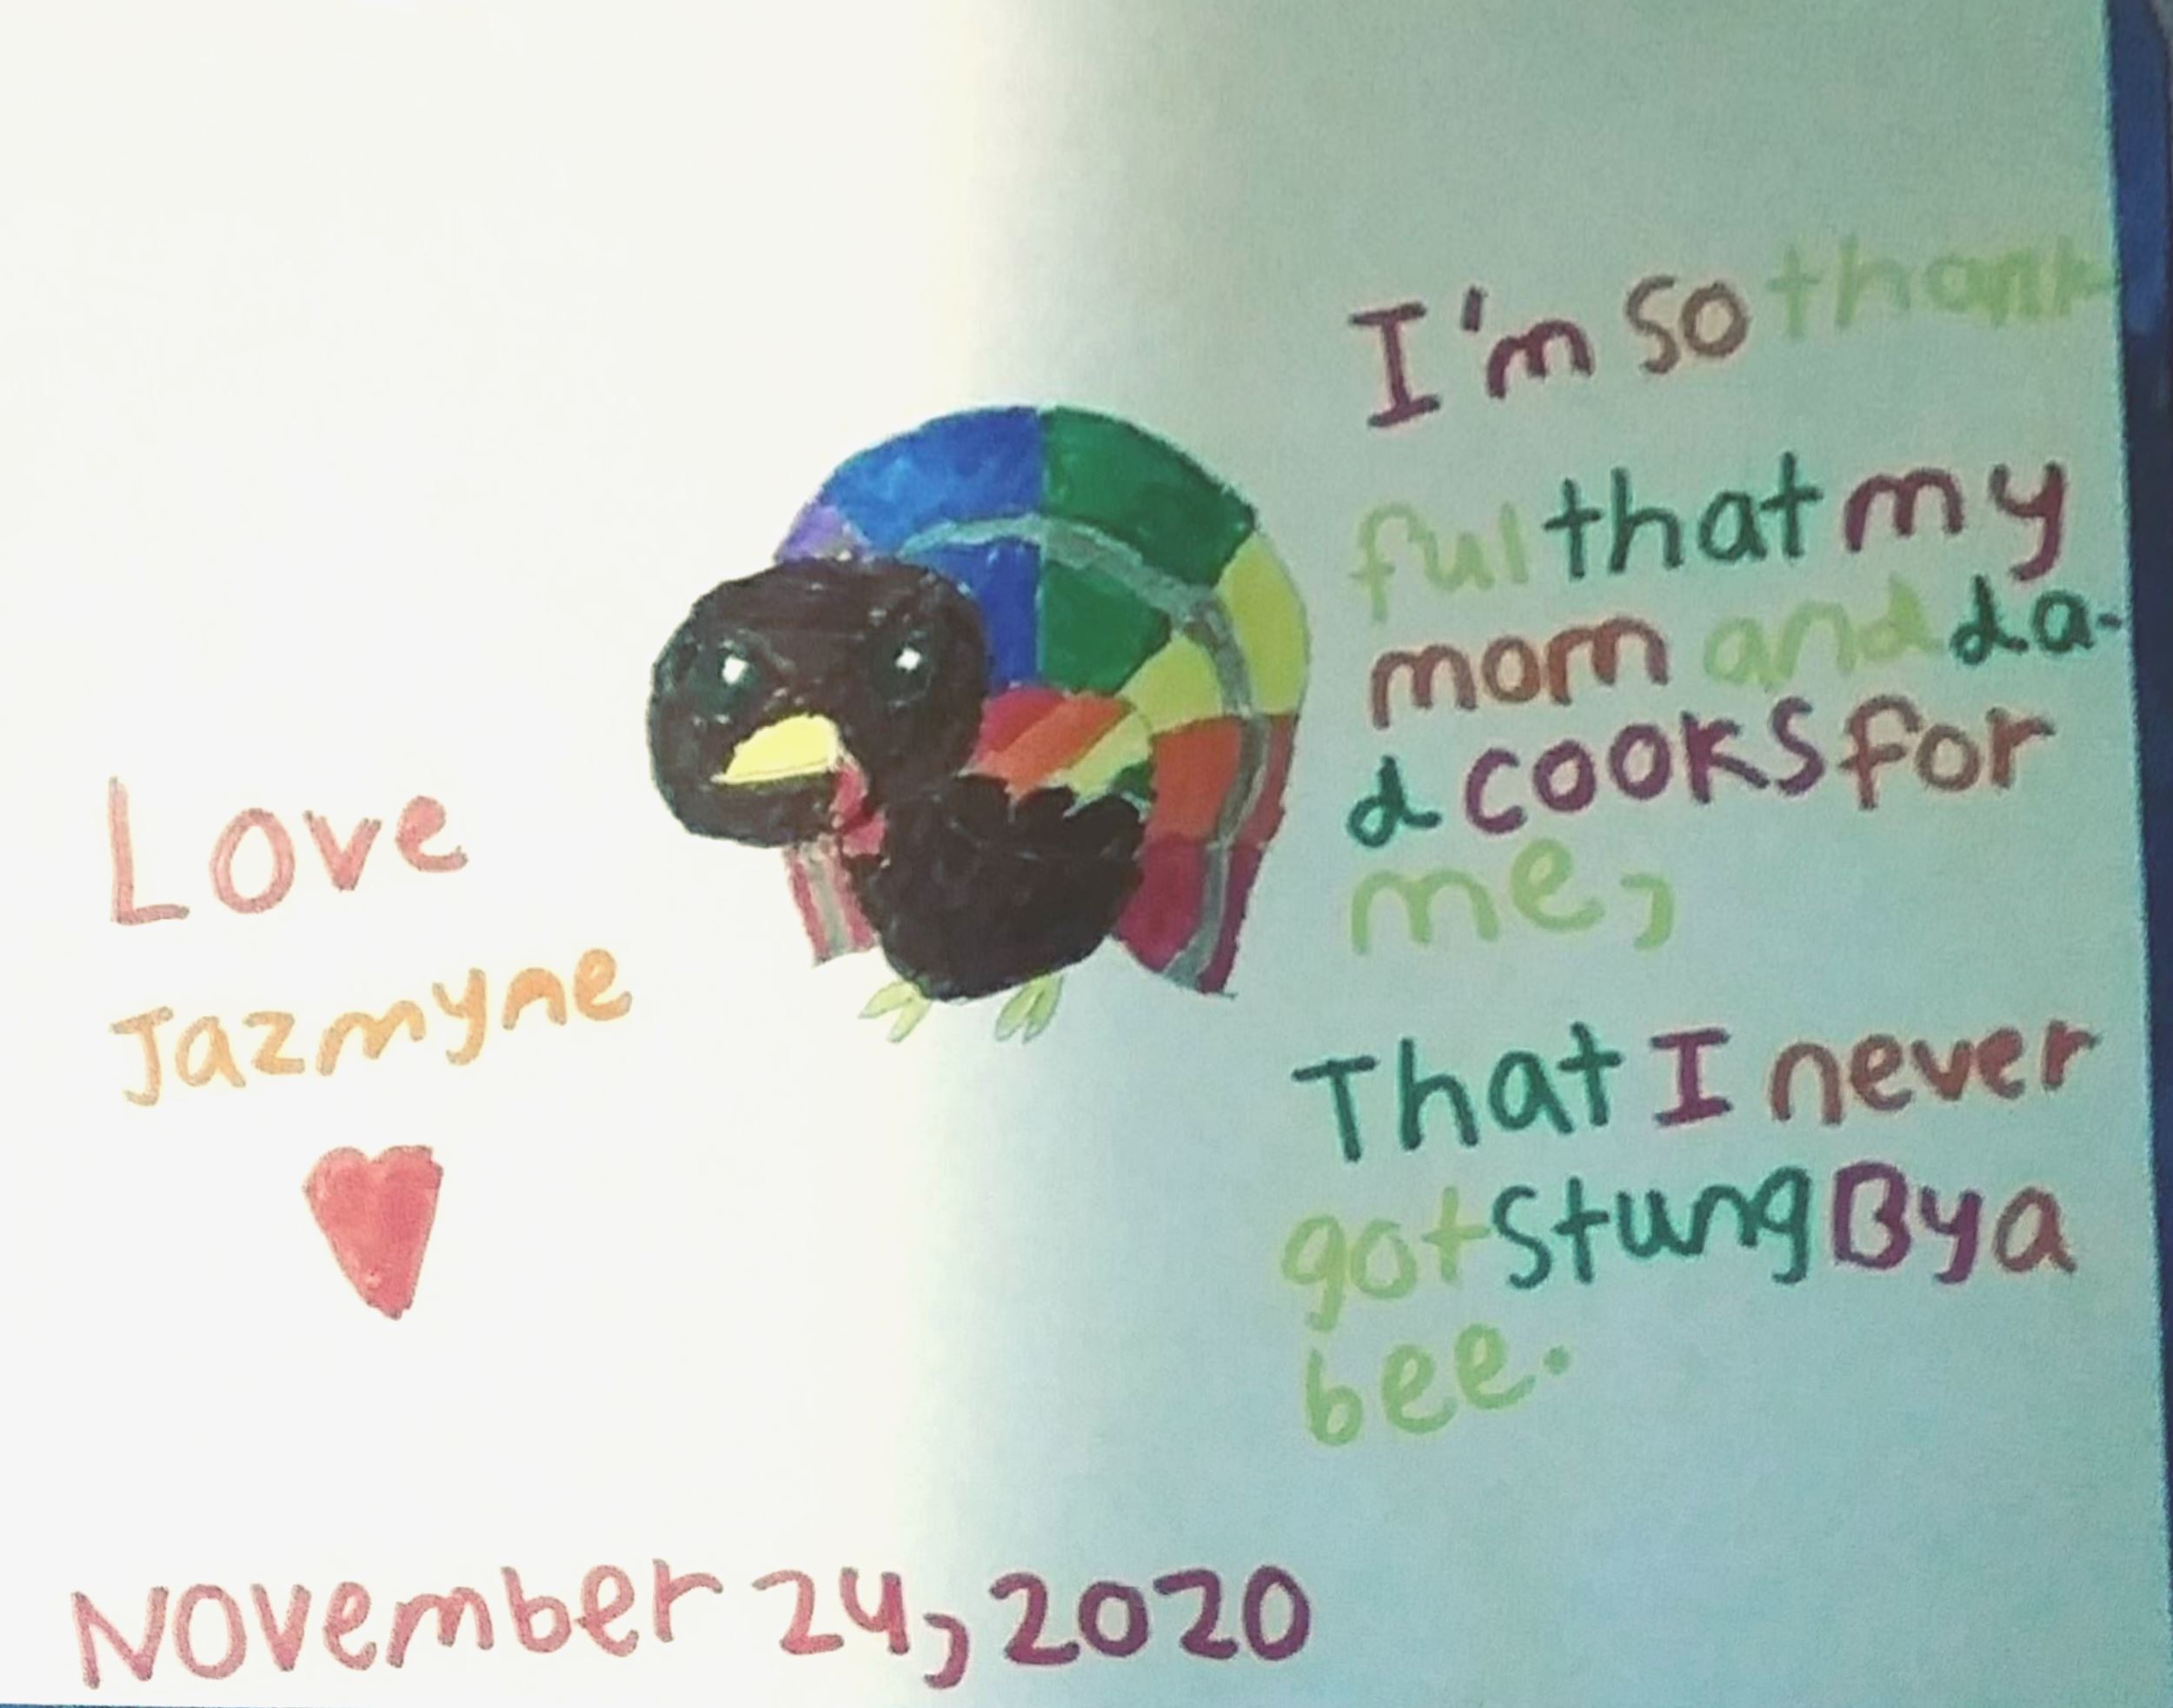 I'm so thank
ful that my
mom and da-
d cooks for
me,
That I never
got stung By a
bee.
Love
Jazmyne
November 24, 2020